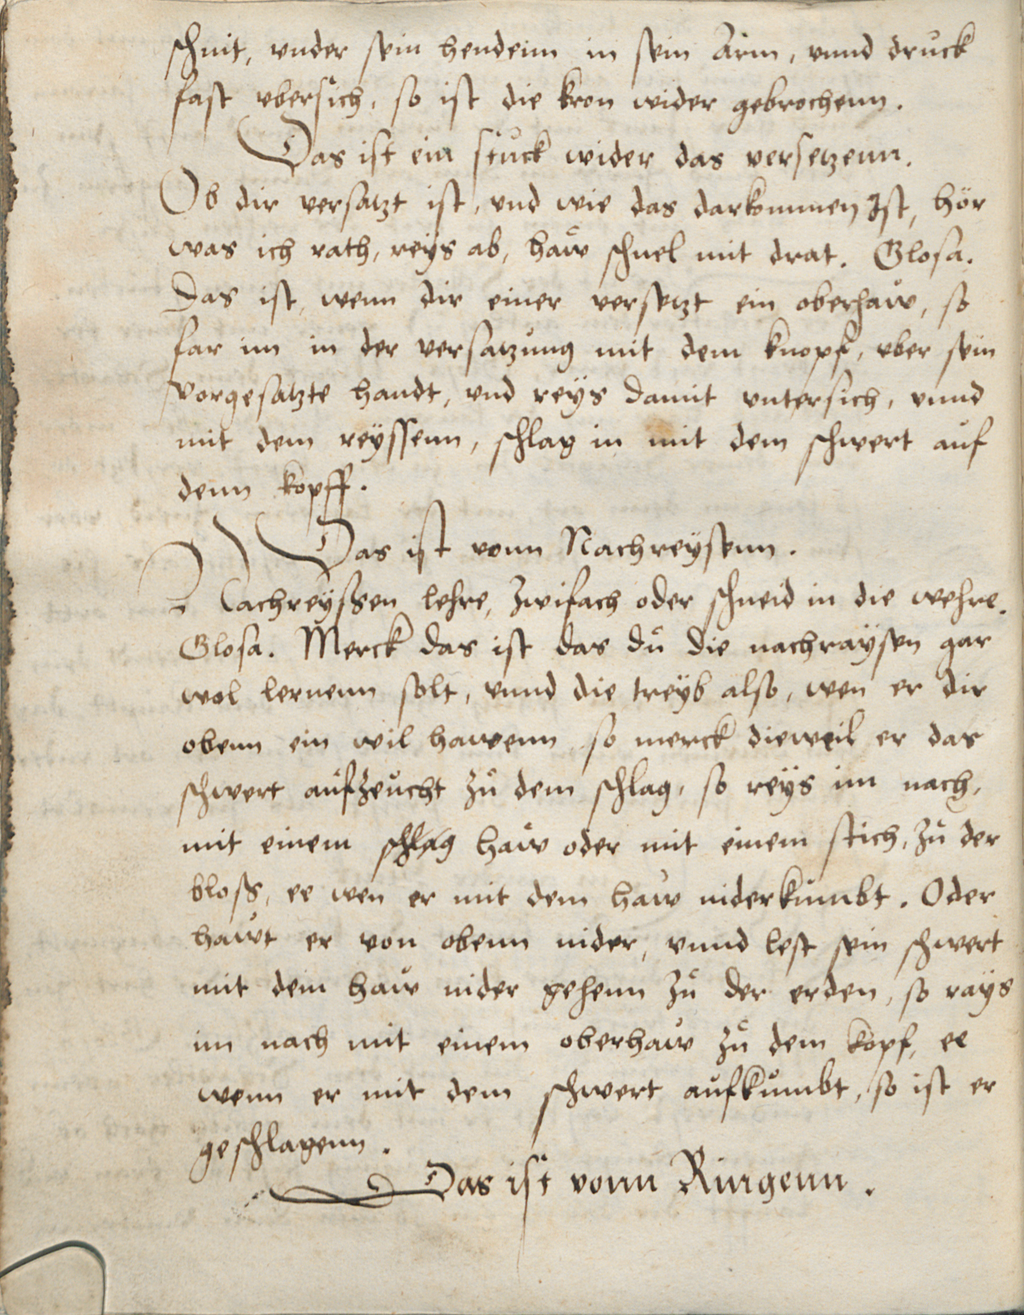 schnit, vnder sein hendenn in sein Arm, vnnd druck
fast vbersich, so ist die kron wider gebrochenn.
Das ist ein stuck wider das versetzenn.
Ob dir versatzt ist, vnd wie das darkommen Ist, hör
was ich rath, reÿs ab, haw schnel mit drat. Glosa.
Das ist, wenn dir einer versetzt ein oberhaw, so
far im in der versatzung mit dem knopf, vber sein
vorgesatzte handt, vnd reÿs damit vntersich, vnnd
mit dem reÿssenn, schlag in mit dem schwert auf
denn kopff.
Das ist vonn Nachreÿsenn.
Nachreÿssen lehre, Zwifach oder schneid in die wehre.
Glosa. Merck das ist das du die nachraÿsen gar
wol lernenn solt, vnnd die treÿb also, wen er dir
obenn ein wil hawenn so merck dieweil er das
schwert aufzeucht zu dem schlag, so reÿs im nach,
mit einem schlag haw oder mit einem stich, zu der
bloss, ee wen er mit dem haw niderkumbt. Oder
hawt er von obenn nider, vnnd lest sein schwert
mit dem haw nider gehenn zu der erden, so raÿs
im nach mit einem oberhaw zu dem kopf, ee
wenn er mit dem schwert aufkumbt, so ist er
geschlagenn.
Das ist vonn Ringenn.